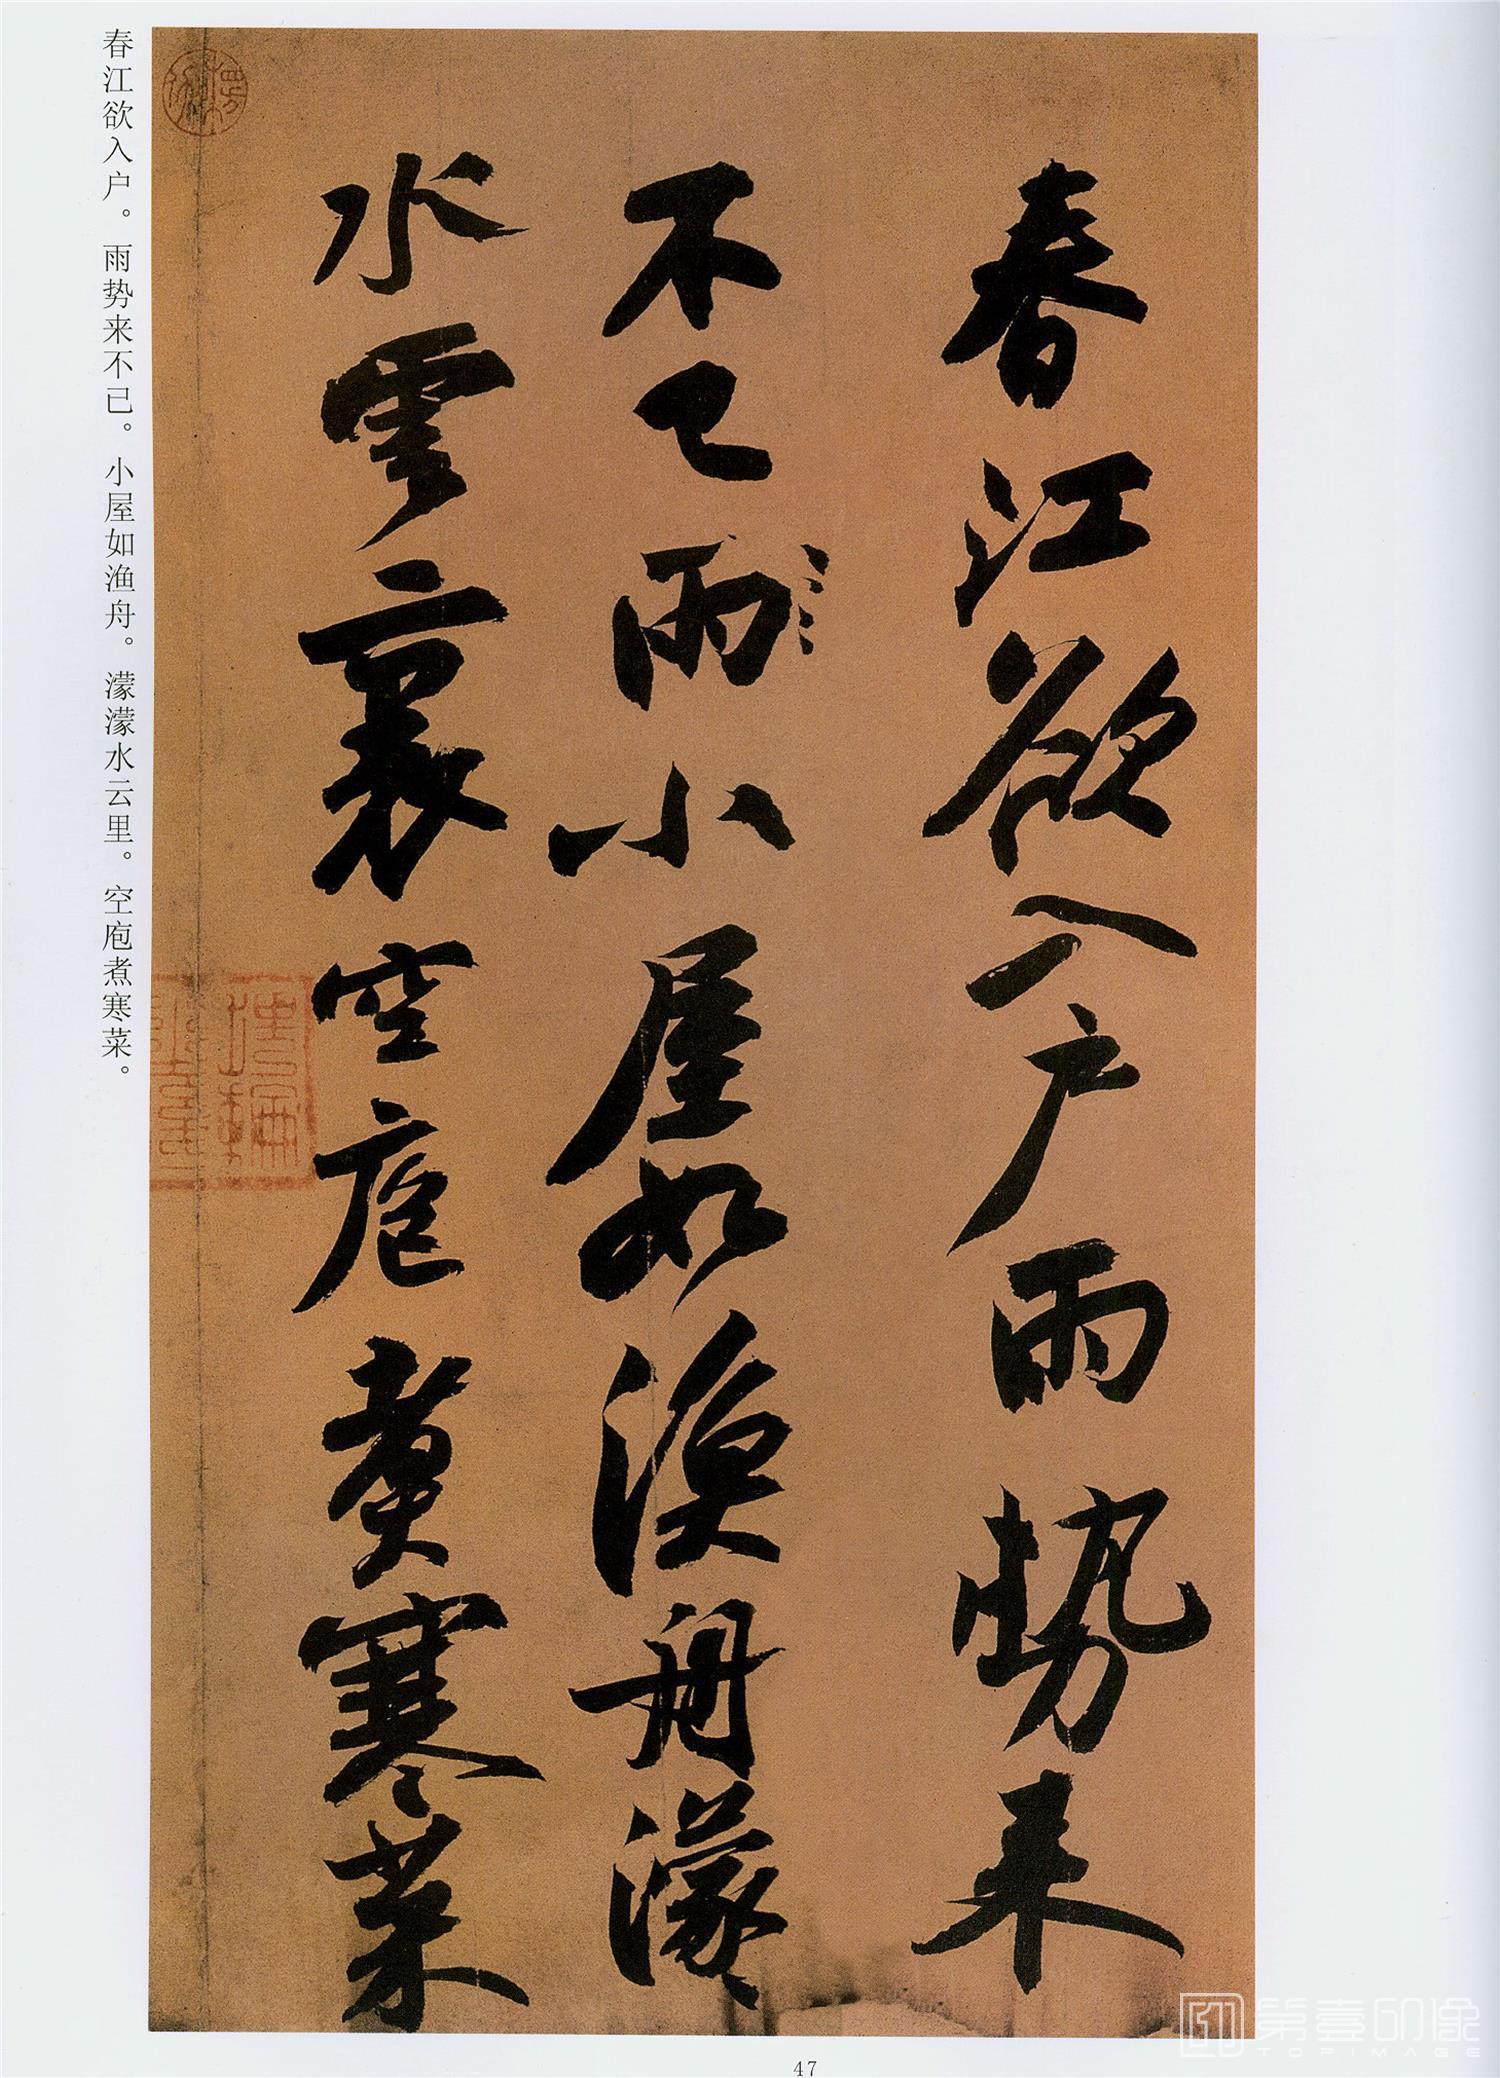 春江欲入户雨勢来
不已雨小屋如漁舟濛〻
水雲裏空庖煮寒菜
春江欲入户。雨势来不已。小屋如渔舟。濛濛水云里。空庖煮寒菜。
47
第壹印像
TOPIMAGE